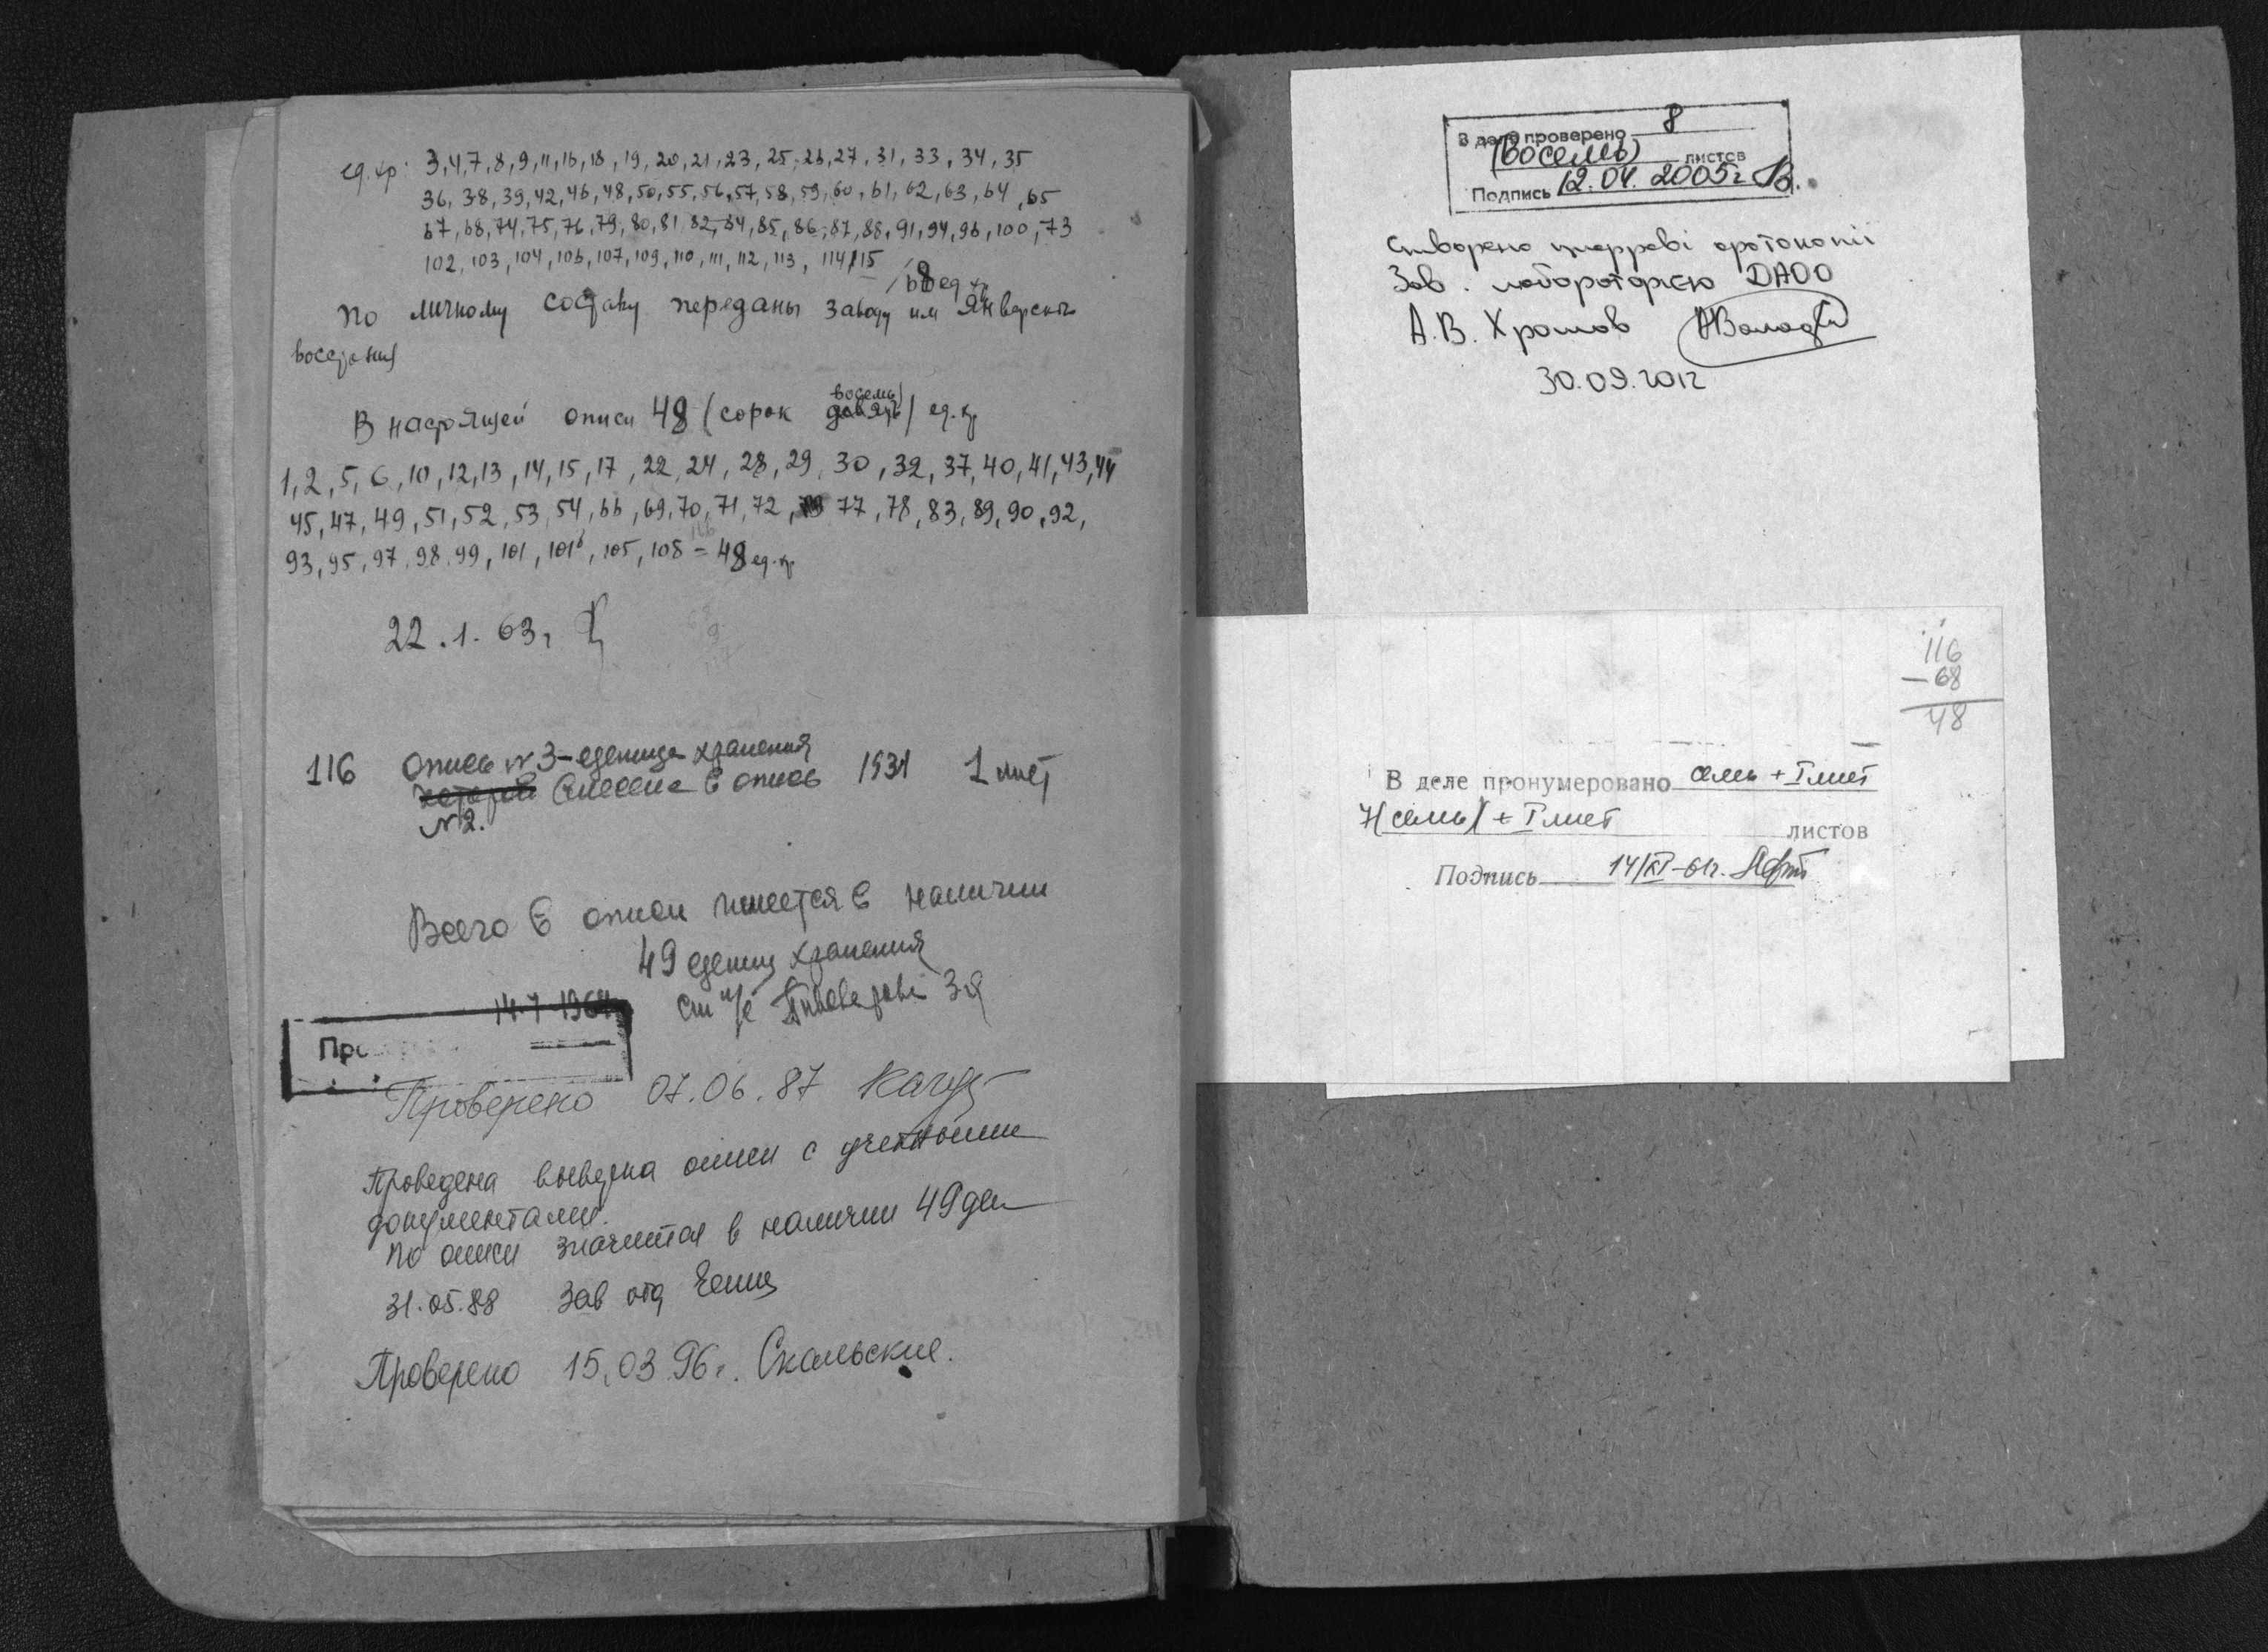 ед. хр. 3, 4, 7, 8, 9, 11, 16, 18, 19, 20, 21, 23, 25, 26, 27, 31, 33, 34, 35
36, 38, 39, 42, 46, 48, 50, 55, 56, 57, 58, 59, 60, 61, 62, 63, 64, 65
67, 68, 74, 75, 76, 79, 80, 81, 82, 84, 85, 86, 87, 88, 91, 94, 96, 100, 73
102, 103, 104, 106, 107, 109, 110, 111, 112, 113, 114, 115
/68 ед. хр.
по личному составу переданы заводу им Январского
восстания
восемь)
В настоящей описи 48 (сорок девять) ед. хр
1, 2, 5, 6, 10, 12, 13, 14, 15, 17, 22, 24, 28, 29, 30, 32, 37, 40, 41, 43, 44
45, 47, 49, 51, 52, 53, 54, 66, 69, 70, 71, 72, 77, 78, 83, 89, 90, 92,
116
93, 95, 97, 98, 99, 101, 101б, 105, 108 = 48 ед. хр.
22.1.63г
116 Опись № 3 – единица хранения
которой внесена в опись 1931 1 лист
№ 2.
Всего в описи имеется в наличии
49 единиц хранения
14.7 1964 ст н/с Пивоварова З Я
Про
Проверено 07.06.87
Проведена выверка описи с учетными
документами.
По описи значится в наличии 49 дел
31.05.88 Зав отд
Проверено 15.03.96г. Скальские.
В деле проверено 8
(восемь) листов
Подпись 12.04.2005г
Створено цифрові фотокопії
Зав. лабораторією ДАОО
А.В. Хромов
30.09.2012
116
– 68
48
В деле пронумеровано семь + 1 лист
7(семь) + 1 лист
листов
Подпись 14/XI-61г.